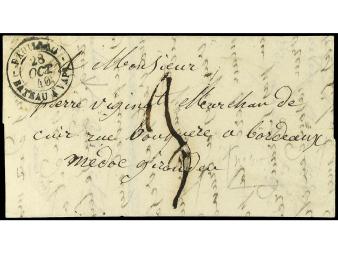 PAUILLAC
28
OCT
40
BATEAU À VAP.
A Monsieur
pierre viginit Marchan de
cuir rue bouquere a bordeaux
medoc gironde
5